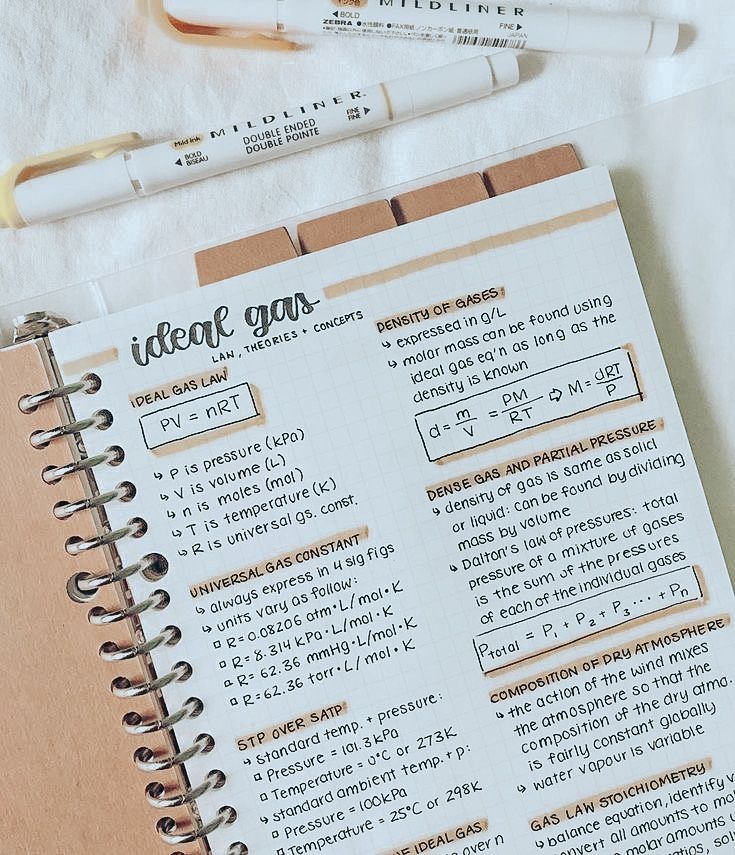 MILDLINER
BOLD
FINE
ZEBRA
JAPAN
MILDLINER
Mild ink
DOUBLE ENDED
DOUBLE POINTE
BOLD
BISEAU
FINE
FINE
ideal gas
LAW, THEORIES + CONCEPTS
IDEAL GAS LAW
PV = nRT
↳ P is pressure (kPa)
↳ V is volume (L)
↳ n is moles (mol)
↳ T is temperature (K)
↳ R is universal gs. const.
UNIVERSAL GAS CONSTANT
↳ always express in 4 sig figs
↳ units vary as follow:
▫ R = 0.08206 atm•L/mol•K
▫ R = 8.314 kPa•L/mol•K
▫ R = 62.36 mmHg•L/mol•K
▫ R = 62.36 torr•L/mol•K
STP OVER SATP
↳ standard temp. + pressure:
▫ Pressure = 101.3 kPa
▫ Temperature = 0°C or 273K
↳ standard ambient temp. + p:
▫ Pressure = 100kPa
▫ Temperature = 25°C or 298K
IDEAL GAS
over n
DENSITY OF GASES:
↳ expressed in g/L
↳ molar mass can be found using
ideal gas eq'n as long as the
density is known
d = m/V = PM/RT ⇨ M = dRT/P
DENSE GAS AND PARTIAL PRESSURE
↳ density of gas is same as solid
or liquid: can be found by dividing
mass by volume
↳ Dalton's law of pressures: total
pressure of a mixture of gases
is the sum of the pressures
of each of the individual gases
Ptotal = P₁ + P₂ + P₃ ... + Pn
COMPOSITION OF DRY ATMOSPHERE
↳ the action of the wind mixes
the atmosphere so that the
composition of the dry atma.
is fairly constant globally
↳ water vapour is variable
GAS LAW STOICHIOMETRY
↳ balance equation, identify
all amounts to
molar amounts